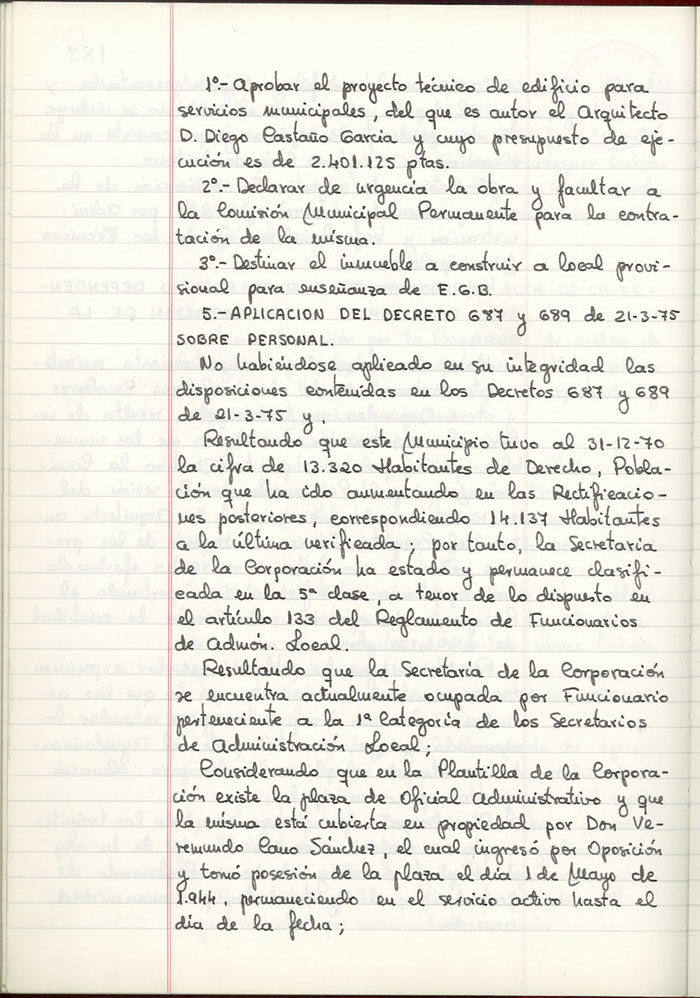 1º.- Aprobar el proyecto técnico de edificio para
servicios municipales, del que es autor el Arquitecto
D. Diego Castaño Garcia y cuyo presupuesto de eje-
cución es de 2.401.125 ptas.
2º.- Declarar de urgencia la obra y facultar a
la Comisión Municipal Permanente para la contra-
tación de la misma.
3º.- Destinar el inmueble a construir a local provi-
sional para enseñanza de E.G.B.
5.- APLICACION DEL DECRETO 687 y 689 de 21-3-75
SOBRE PERSONAL.
No habiéndose aplicado en su integridad las
disposiciones contenidas en los Decretos 687 y 689
de 21-3-75 y.
Resultando que este Municipio tuvo al 31-12-70
la cifra de 13.320 Habitantes de Derecho, Pobla-
ción que ha ido aumentando en las Rectificacio-
nes posteriores, correspondiendo 14.137 Habitantes
a la última verificada; por tanto, la Secretaria
de la Corporación ha estado y permanece clasifi-
cada en la 5ª clase, a tenor de lo dispuesto en
el artículo 133 del Reglamento de Funcionarios
de Admón. Local.
Resultando que la Secretaría de la Corporación
se encuentra actualmente ocupada por Funcionario
perteneciente a la 1ª Categoría de los Secretarios
de Administración Local;
Considerando que en la Plantilla de la Corpora-
ción existe la plaza de Oficial Administrativo y que
la misma está cubierta en propiedad por Don Ve-
remundo Cano Sánchez, el cual ingresó por Oposición
y tomó posesión de la plaza el día 1 de Mayo de
1.944, permaneciendo en el servicio activo hasta el
día de la fecha;